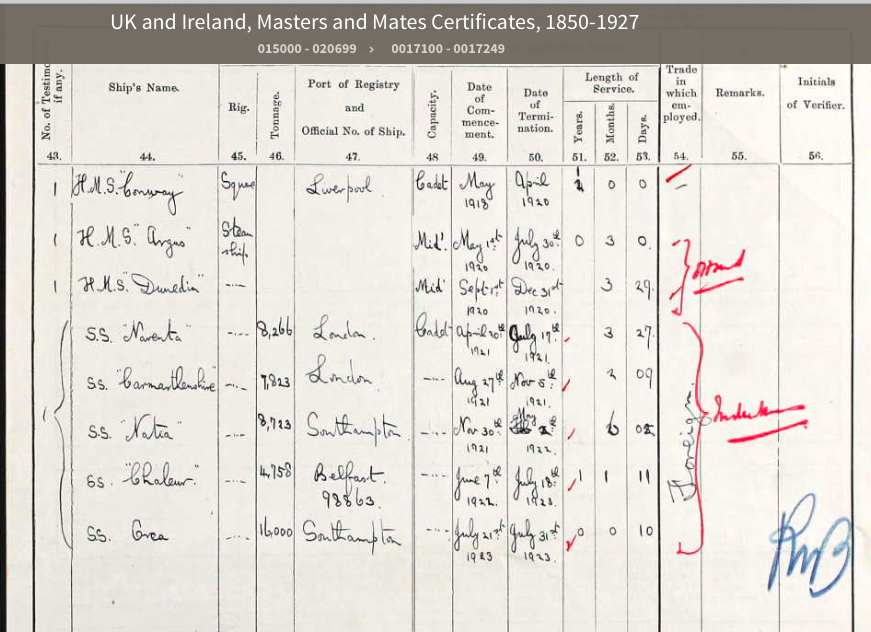 UK and Ireland, Masters and Mates Certificates, 1850-1927
015000 - 020699 › 0017100 - 0017249
No. of Testimo if any. Ship's Name. Rig. Tonnage. Port of Registry and Official No. of Ship. Capacity. Date of Com- mence- ment. Date of Termi- nation. Length of Service. Years. Months. Days. Trade in which em- ployed. Remarks. Initials of Verifier.
43. 44. 45. 46. 47. 48 49. 50. 51. 52. 53. 54. 55. 56.
1 H.M.S. "Conway" Square Liverpool. Cadet May 1918 April 1920 0 0
1 H.M.S. "Argus" Steam ship. Mid'. May 1st 1920 July 30th 1920. 0 3 0.
1 H.M.S. "Dunedin" Mid' Sept 1st 1920 Dec 31st 1920. 3 29.
1 S.S. "Narenta" 8,266 London. Cadet April 20th 1921 July 17th 1921. 3 27.
SS. "Carmarthenshire" 7,823 London. Aug 27th 1921 Nov 5th 1921. 2 09
S.S. "Natia" 8,723 Southampton. Nov 30th 1921 May 1922. 6
SS. "Chaleur." 4,758 Belfast. 98863. June 7th 1922. July 18th 1923. 1 1 11
SS. Orca 16,000 Southampton July 21st 1923 July 31st 1923. 0 0 10
Foreign.
RMB